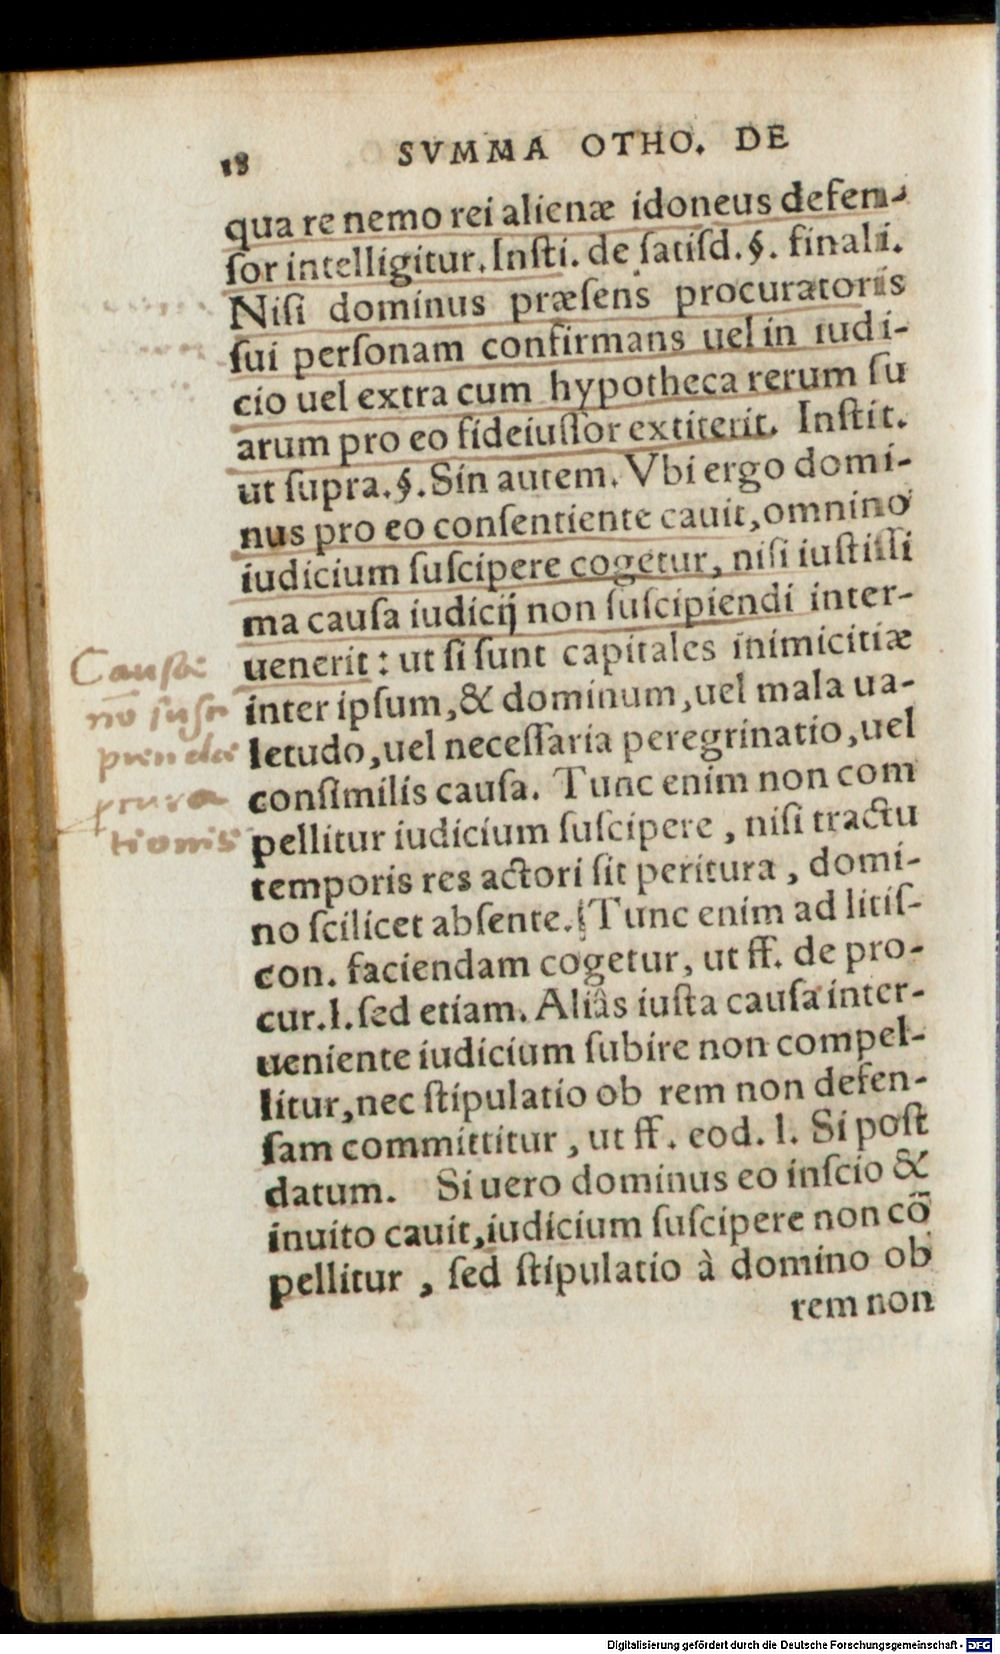 18 SVMMA OTHO. DE
qua re nemo rei alienæ idoneus defen-
ſor intelligitur. Inſti. de ſatiſd. §. finali.
Niſi dominus præſens procuratoris
ſui perſonam confirmans uel in iudi-
cio uel extra cum hypotheca rerum ſu
arum pro eo fideiuſſor extiterit. Inſtit.
ut ſupra. §. Sin autem. Vbi ergo domi-
nus pro eo conſentiente cauit, omnino
iudicium ſuſcipere cogetur, niſi iuſtiſſi
ma cauſa iudicij non ſuſcipiendi inter-
uenerit: ut ſi ſunt capitales inimicitiæ
inter ipſum, & dominum, uel mala ua-
letudo, uel neceſſaria peregrinatio, uel
conſimilis cauſa. Tunc enim non com
pellitur iudicium ſuſcipere, niſi tractu
temporis res actori ſit peritura, domi-
no ſcilicet abſente. Tunc enim ad litiſ-
con. faciendam cogetur, ut ff. de pro-
cur. l. ſed etiam. Aliâs iuſta cauſa inter-
ueniente iudicium ſubire non compel-
litur, nec ſtipulatio ob rem non defen-
ſam committitur, ut ff. eod. l. Si poſt
datum. Si uero dominus eo inſcio &
inuito cauit, iudicium ſuſcipere non cõ
pellitur, ſed ſtipulatio à domino ob
rem non
Cauſæ
nō ſuſci
piendæ
procura
tionis
Digitalisierung gefördert durch die Deutsche Forschungsgemeinschaft - DFG